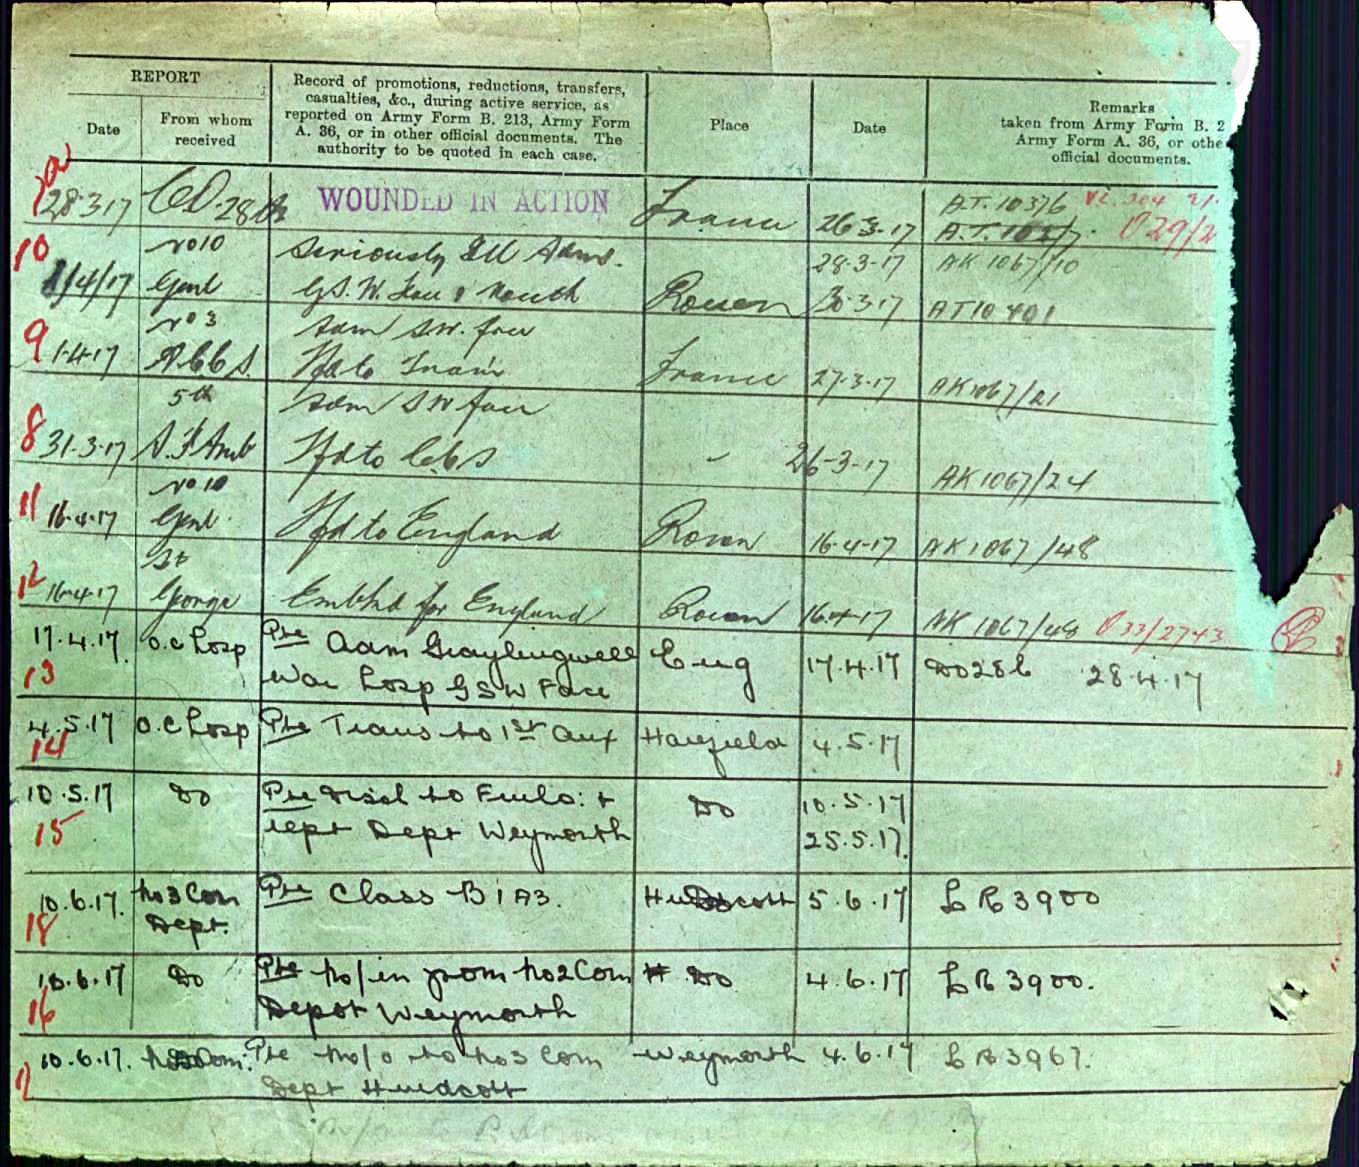 REPORT
Date
From whom
received
Record of promotions, reductions, transfers,
casualties, &c., during active service, as
reported on Army Form B. 213, Army Form
A. 36, or in other official documents. The
authority to be quoted in each case.
Place
Date
Remarks
taken from Army Form B. 2
Army Form A. 36, or othe
official documents.
28·3·17 CO. 28th WOUNDED IN ACTION France 26·3·17 A.T. 10376
10 No 10 Seriously Ill Adms. 28·3·17 AK 1067/10
1/4/17 Genl G.S.W. Face & Mouth Rouen 30·3·17 AT 10401
9 No 3 adm SW. face
1·4·17 A.C.C.S. Tfd to Train France 27·3·17 AK 1067/21
8 5th adm SW face
31·3·17 A. F Amb Tfd to CCS 〃 26-3-17 AK 1067/24
11 No 10
16·4·17 Genl Tfd to England Rouen 16·4·17 AK 1067/48
12 St
16·4·17 George Embkd for England Rouen 16·4·17 AK 1067/48 33/2743
17.4.17. O.C Hosp Pte Adm Graylingwell Eng 17.4.17 DO 286 28.4.17
13 War Hosp GSW Face
4.5.17 O.C Hosp Pte Trans to 1st Aux Harefield 4.5.17
14
10.5.17 Do Pte disch to Furlo: & Do 10.5.17
15 rept Dept Weymouth 25.5.17.
10.6.17. No 3 Com Pte Class B1A3. Hurdcott 5.6.17 LR 3900
18 Dept.
10.6.17 Do Pte M/in from No 2 Com Do 4.6.17 LR 3900.
16 Depot Weymouth
10.6.17. Com: Pte M/o to No 3 Com Weymouth 4.6.17 LR 3967.
Dept Hurdcott